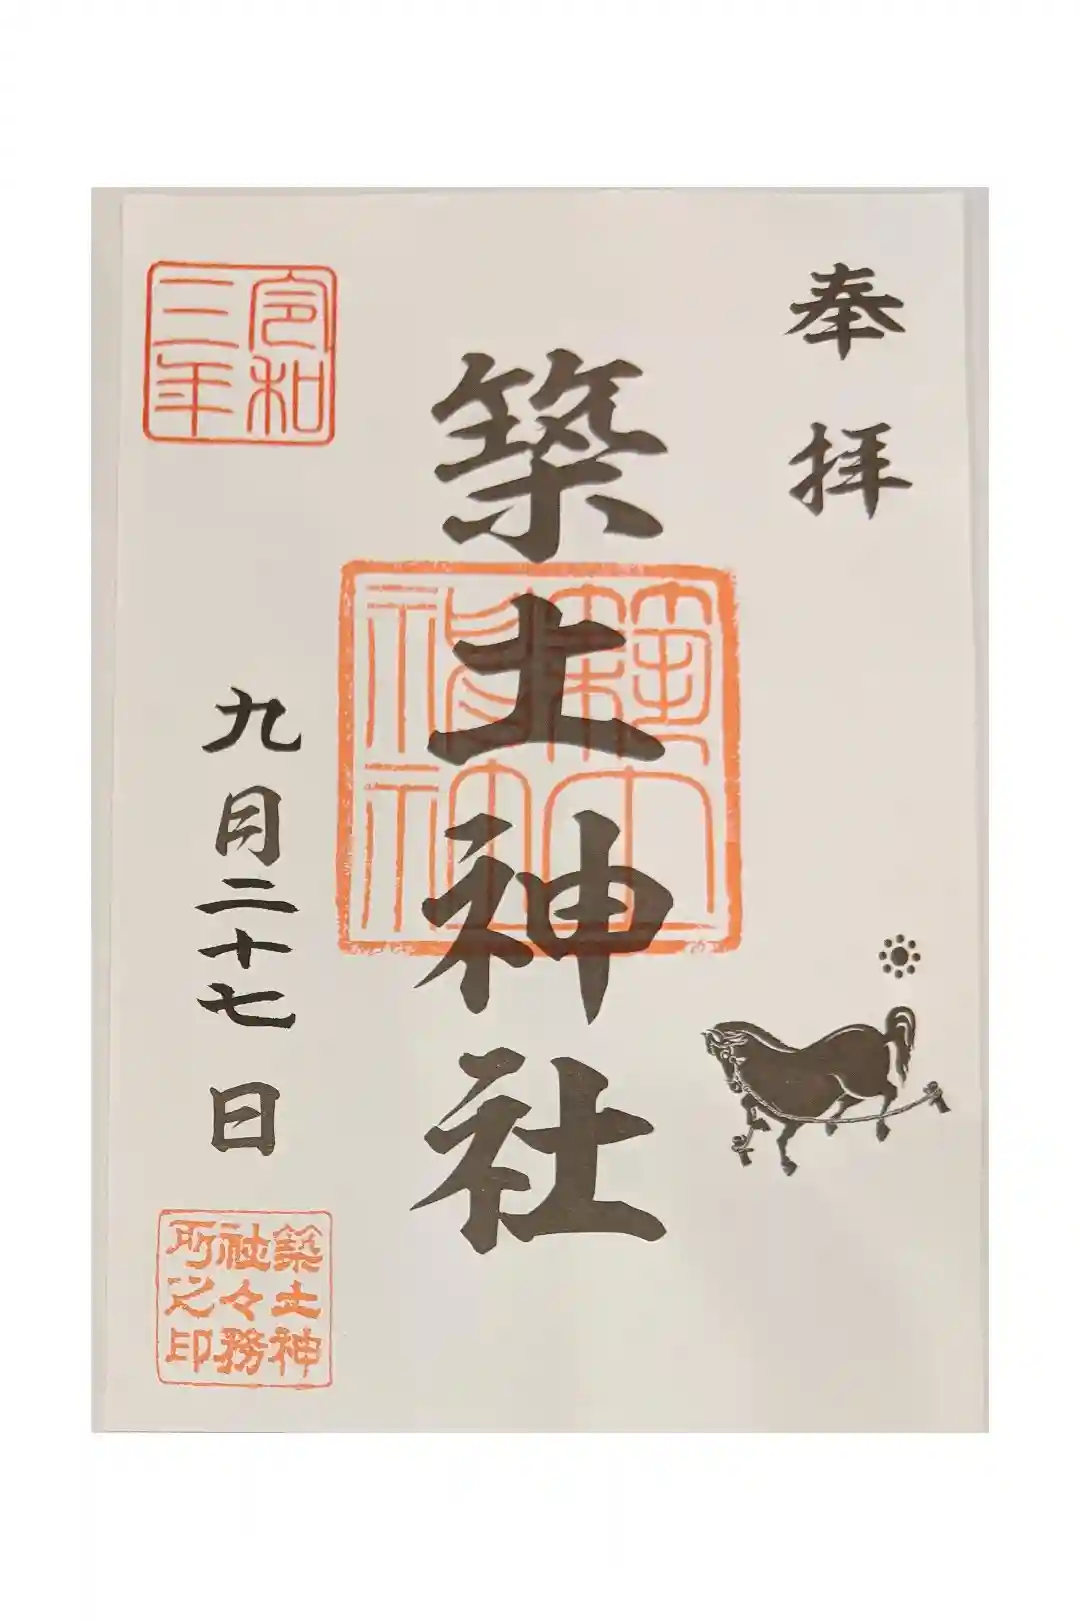 奉拝
築土神社
築土神社
令和三年
九月二十七日
築土神社々務所之印